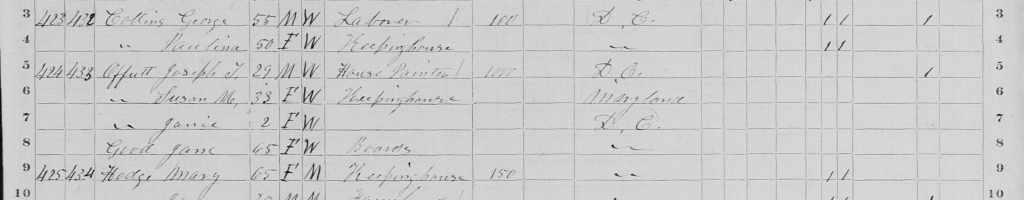 3 423 432 Cotting George 55 M W Laborer / 100 D. C. 1 1 1 3
4 " Paulina 50 F W Keepinghouse " 1 1 4
5 424 433 Offutt Joseph T. 29 M W House Painter / 1000 D. C. 1 5
6 " Susan M, 33 F W Keepinghouse Maryland 6
7 " Janie 2 F W D. C. 7
8 Good Jane 65 F W Boards " 8
9 425 434 Hodge Mary 65 F M Keepinghouse 150 " 1 1 9
10 M M 1 10